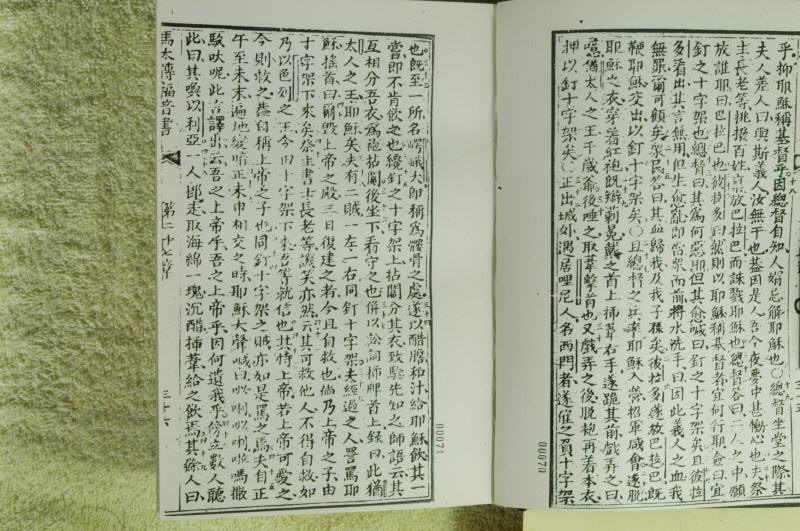 乎抑耶穌稱基督乎因總督自知人媢忌解耶穌也〇總督坐堂之際其
夫人差人曰與斯義人汝無干也蓋因是人吾今夜夢中甚慟心也夫祭
主長老等挑撥百姓放巴拉巴而誅戮耶穌也總督答曰二人之中願
放誰耶曰巴拉巴也彼拉多曰然則以耶穌稱基督者宜何行耶僉曰宜
釘之十字架也總督曰其爲何惡耶但其愈喊曰釘之十字架矣且彼拉
多看出其言無用但生愈亂即當衆面前將水洗手曰因此義人之血我
無罪爾可顧矣衆民答曰其血歸我及我子孫矣後拉多遂放巴拉巴旣
鞭耶穌交出以釘十字架矣〇且總督之兵率耶穌入營招軍咸會遂脱
耶穌之衣穿着紅袍旣辮荊冕戴之首上揷葦右手遂跪其前戲弄之曰
噫猶太人之王千歲爺後唾之取葦擊首也又戲弄之後脱袍再着本衣
押以釘十字架矣〇正出城外遇居哩尼人名西門者遂催之負十字架
00070
也旣至一所名嶱嶬大即稱爲髏骨之處遂以醋膽和汁給耶穌飲其一
嘗即不肯飲之也纔釘之十字架上拈鬮分其衣致驗先知之師語云其
互相分吾衣爲袍拈鬮後坐下看守之也併以訟詞揷牌首上錄曰此猶
太人之王耶穌矣夫有二賊一左一右同釘十字架夫經過之人詈罵耶
穌搖首曰爾毀上帝之殿三日復建之者今且自救也倘乃上帝之子由
十字架下來矣祭主書士長老等譏笑亦然云其可救他人不得自救如
乃以色列之王今由十字架下來吾等就信也其恃上帝若上帝可愛之
今則救之蓋自稱上帝之子也同釘十字架之賊亦如是罵之焉夫自正
午至未末遍地變暗正未申相交之時耶穌大聲喊曰以唎以唎啦嗎撒
駁呔呢此言譯出云吾之上帝乎吾之上帝乎因何遺我乎傍立數人聽
此曰其喚以利亞一人卽走取海絨一塊沉醋揷葦給之飲焉其餘人曰
馬太傳福音書
第二十七節
三十六
00071